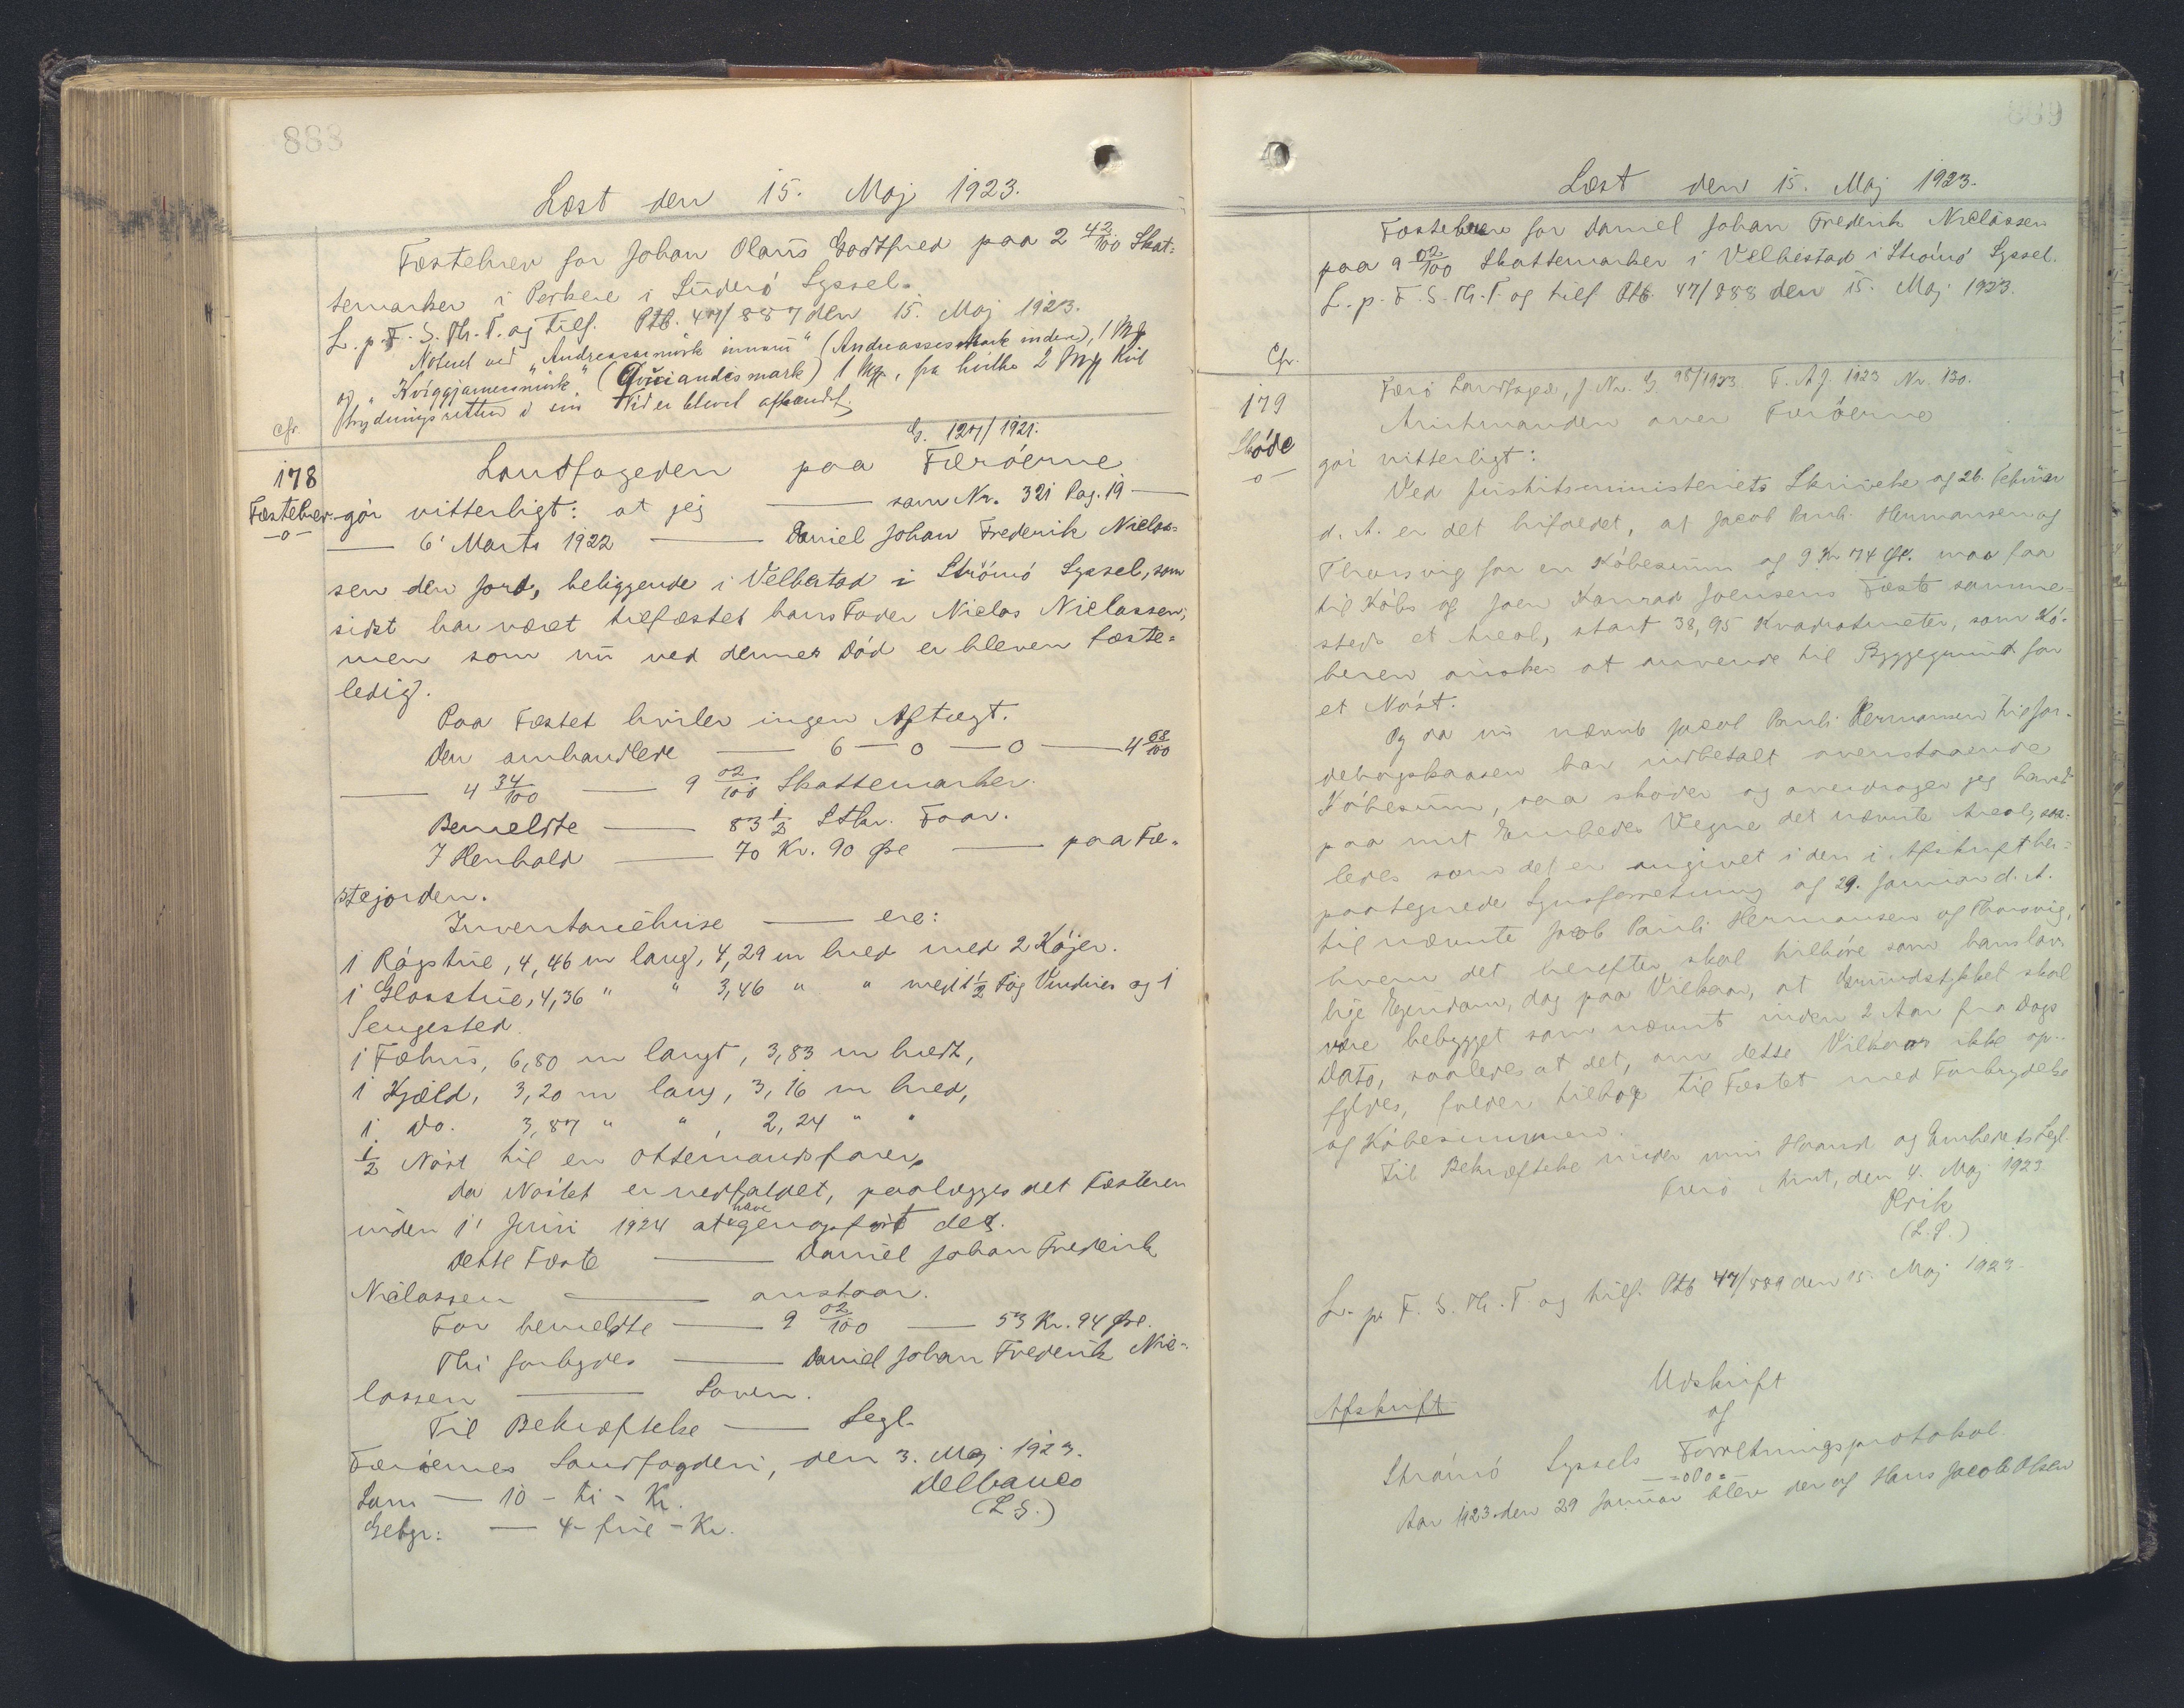 888
Læst den 15. Maj 1923.
Fæstebrev for Johan Olaus Godtfred paa 2 42/100 Skat-
temarker i Porkere i Suderø Syssel.
L. p. F. S. Th. T. og tilf. Ptb. 47/887 den 15. Maj 1923.
Noteret ved "Andreassarmørk innaru" (Andreassesmark indere), 1 Mk
og " (Qviciandesmark) 1 Mk, fra hvilke 2 Mk
i sin Tid er blevet afhændet.
cfr.
G. 127/1921.
178
Landfogeden paa Færøerne
Fæstebrev.
-o-
gør vitterligt: at jeg — som Nr. 321 Pag. 19 —
— 6' Marts 1922 — Daniel Johan Frederik Niclas-
sen den Jord, beliggende i Velbestad i Strømø Syssel, som
sidst har været tilfæstet hans Fader Niclas Niclassen,
men som nu ved dennes Død er bleven fæste-
ledig.
Paa Fæstet hviler ingen Aftægt.
Den omhandlede — 6 — 0 — 0 — 4 68/100
— 4 34/100 — 9 02/100 Skattemarker.
Bemeldte — 83 1/2 Stkr. Faar.
I Henhold — 70 Kr. 90 Øre — paa Fæ-
stejorden.
Inventariehuse — ere:
1 Røgstue, 4,46 m lang, 4,29 m bred med 2 Køjer.
1 Glasstue, 4,36 " " 3,46 " " med 1 1/2 Fag Vinduer og 1
Sengested.
1 Fæhus, 6,80 m langt, 3,83 m bredt,
1 Kjæld, 3,20 m lang, 3,16 m bred,
1 Do. 3,87 " " , 2,24 " "
1/2 Nøst til en Ottemandsfarer,
da Nøstet er nedfaldet, paalægges det Fæsteren
inden 1' Juni 1924 at have genopført det.
Dette Fæste — Daniel Johan Frederik
Niclassen — anstaar.
For bemeldte — 9 02/100 — 53 Kr. 94 Øre.
Thi forbydes — Daniel Johan Frederik Nic-
lassen — Loven.
Til Bekræftelse — Segl.
Færøernes Landfogderi, den 3. Maj 1923.
Delbanco
(L.S.)
Lam — 10 - ti - Kr.
Gebyr: — 4 - fire - Kr.
889
Læst den 15. Maj 1923.
Fæstebrev for Daniel Johan Frederik Niclassen
paa 9 02/100 Skattemarker i Velbestad i Strømø Syssel.
L. p. F. S. Th. T. og tilf. Ptb. 47/888 den 15. Maj 1923.
Cfr.
179
Skøde
-o-
Færø Landfoged, J. Nr. G. 98/1923 F. A. J. 1923 Nr. 130.
Amtmanden over Færøerne
gør vitterligt:
Ved Justitsministeriets Skrivelse af 26. Februar
d. A. er det bifaldet, at Jacob Pauli Hermansen af
Thorsvig for en Købesum af 9 Kr 74 Øre maa faa
til Købs af Joen Konrad Joensens Fæste samme-
steds et Areal, stort 38,95 Kvadratmeter, som Kø-
beren ønsker at anvende til Byggegrund for
et Nøst.
Og da nu nævnte Jacob Pauli Hermansen til Jor-
debogskassen har indbetalt ovenstaaende
Købesum, saa skøder og overdrager jeg herved
paa mit Embedes Vegne det nævnte Areal, saa-
ledes som det er angivet i den i Afskrift her-
paategnede Synsforretning af 29. Januar d. A.
til nævnte Jacob Pauli Hermansen af Thorsvig,
hvem det herefter skal tilhøre som hans lov-
lige Ejendom, dog paa Vilkaar, at Grundstykket skal
være bebygget som nævnt inden 2 Aar fra Dags
Dato, saaledes at det, om dette Vilkaar ikke op-
fyldes, falder tilbage til Fæstet med Fortrydelse
af Købesummen.
Til Bekræftelse under min Haand og Embedets Segl.
Færø Amt, den 4. Maj 1923
(L.S.)
L. p. F. S. Th. T. og tilf. Ptb 47/889 den 15. Maj 1923.
Afskrift
Udskrift
af
Strømø Syssels Forretningsprotokol.
-=o0o=-
Aar 1923 den 29 Januar blev der af Hans Jacob Olsen